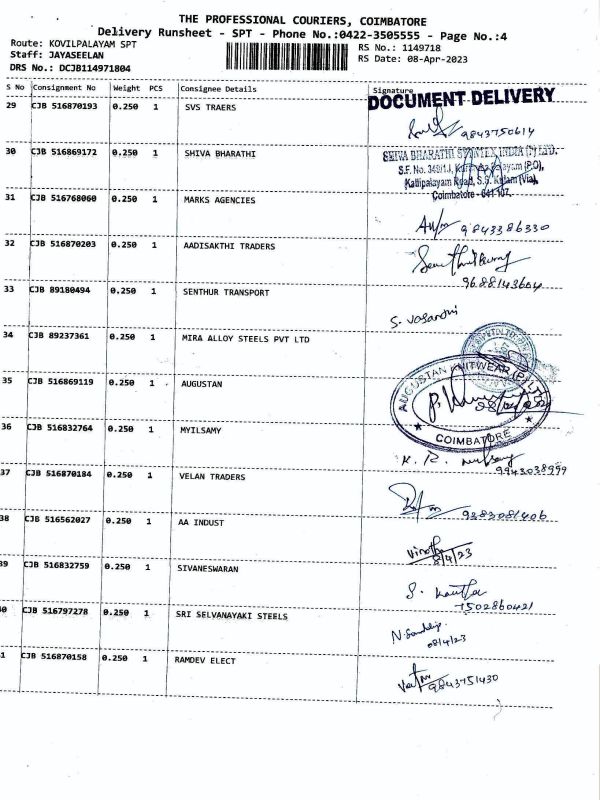 THE PROFESSIONAL COURIERS, COIMBATORE
Delivery Runsheet - SPT - Phone No.:0422-3505555 - Page No.:4
Route: KOVILPALAYAM SPT
RS No.: 1149718
Staff: JAYASEELAN
RS Date: 08-Apr-2023
DRS No.: DCJB114971804
S No Consignment No Weight PCS Consignee Details Signature
DOCUMENT DELIVERY
29 CJB 516870193 0.250 1 SVS TRAERS
9843750614
30 CJB 516869172 0.250 1 SHIVA BHARATHI
SHIVA BHARATHI INDIA (P) LTD.
S.F. No. (P.O),
Kallipalayam Road, S.S. Kulam (Via),
Coimbatore - 641 107.
31 CJB 516768060 0.250 1 MARKS AGENCIES
9843386330
32 CJB 516870203 0.250 1 AADISAKTHI TRADERS
9688143604
33 CJB 89180494 0.250 1 SENTHUR TRANSPORT
S. Vasanthi
34 CJB 89237361 0.250 1 MIRA ALLOY STEELS PVT LTD
35 CJB 516869119 0.250 1 AUGUSTAN
AUGUSTAN KNITWEAR (P) LTD
COIMBATORE
36 CJB 516832764 0.250 1 MYILSAMY
9943038999
37 CJB 516870184 0.250 1 VELAN TRADERS
9383081406
38 CJB 516562027 0.250 1 AA INDUST
8/4/23
39 CJB 516832759 0.250 1 SIVANESWARAN
7502860421
40 CJB 516797278 0.250 1 SRI SELVANAYAKI STEELS
08/4/23
41 CJB 516870158 0.250 1 RAMDEV ELECT
9843751430